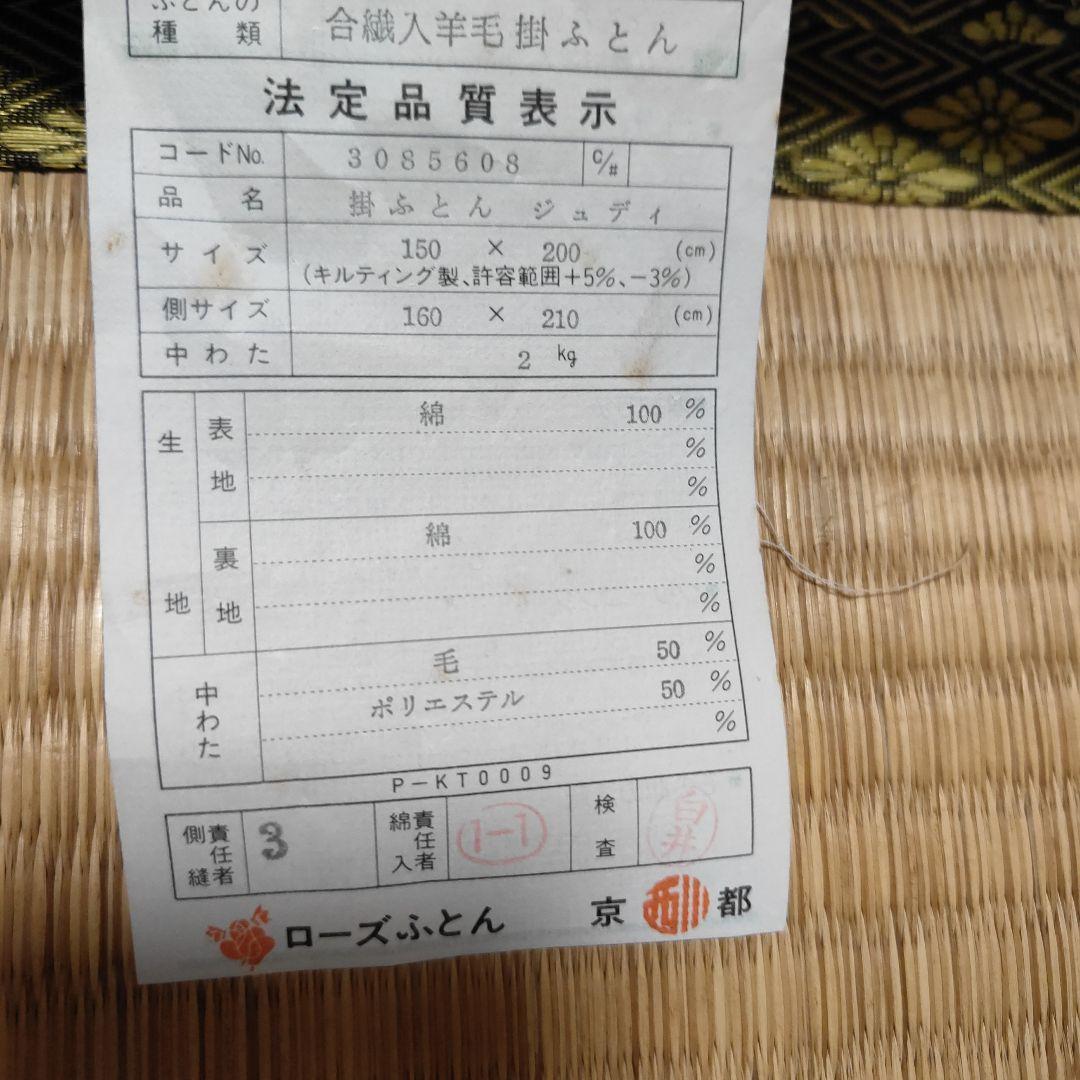 ふとんの
種類 合繊入羊毛掛ふとん
法定品質表示
コードNo. 3085608 C/#
品名 掛ふとん ジュディ
サイズ 150 × 200 (cm)
(キルティング製、許容範囲+5%、-3%)
側サイズ 160 × 210 (cm)
中わた 2 kg
生地 表地 綿 100 %
%
%
裏地 綿 100 %
%
%
中わた 毛 50 %
ポリエステル 50 %
%
P-KT0009
側縫責任者 3 綿入責任者 1-1 検査 白井
ローズふとん 京 西川 都